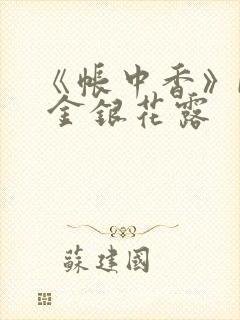 《帳中香》
金銀花露
蘇建國